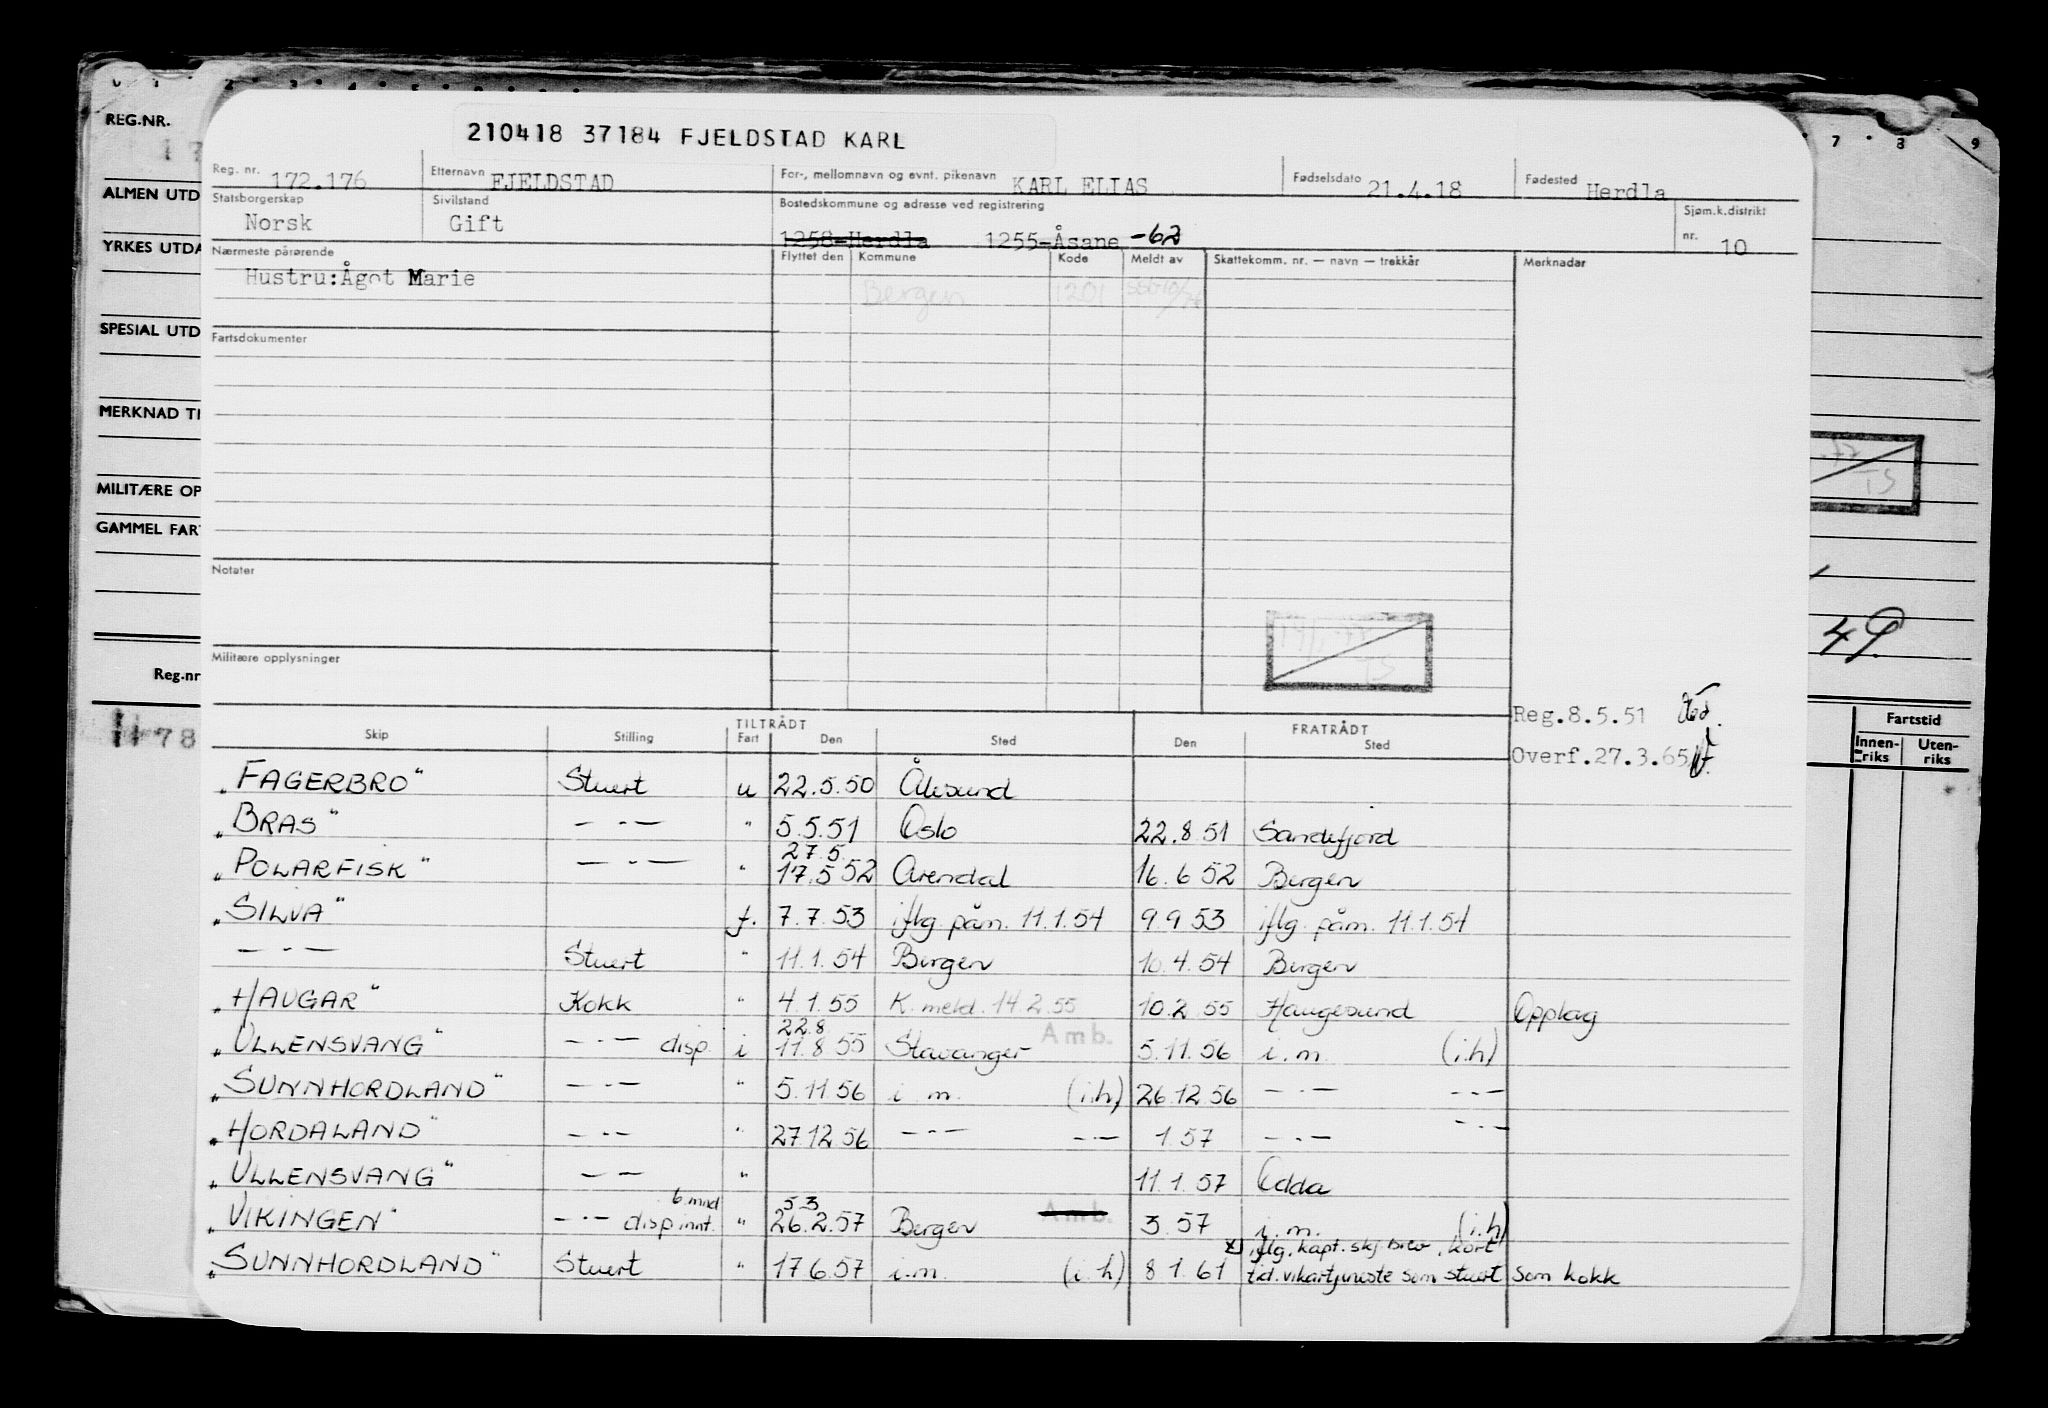 0 1 2 3 4 5
7 8 9
REG.NR.
ALMEN UTD
YRKES UTDA
SPESIAL UTD
MERKNAD TI
MILITÆRE OP
GAMMEL FAR
Reg.nr
178
49.
Fartstid
Innen-riks Uten-riks
210418 37184 FJELDSTAD KARL
Reg. nr. 172.176 Etternavn FJELDSTAD For-, mellomnavn og evnt. pikenavn KARL ELIAS Fødselsdato 21.4.18 Fødested Herdla
Statsborgerskap Norsk Sivilstand Gift Bostedskommune og adresse ved registrering 1258-Herdla 1255-Åsane -62 Sjøm.k.distrikt nr. 10
Nærmeste pårørende Flyttet den Kommune Kode Meldt av Skattekomm. nr. — navn — trekkår Merknader
Hustru:Ågot Marie Bergen 1201
Fartsdokumenter
Notater
TS
Militære opplysninger
Reg.8.5.51
Overf.27.3.65
TILTRÅDT FRATRÅDT
Skip Stilling Fart Den Sted Den Sted
"FAGERBRO" Stuert u 22.5.50 Ålesund
"BRAS" — · — " 5.5.51 Oslo 22.8.51 Sandefjord
27.5.
"POLARFISK" — · — " 17.5 52 Arendal 16.6 52 Bergen
"SILVA" f. 7.7.53 iflg. påm. 11.1.54 9 9 53 iflg. påm. 11.1.54
— · — Stuert " 11.1.54 Bergen 10.4.54 Bergen
"HAUGAR" Kokk " 4.1.55 K. meld. 14.2.55 10.2.55 Haugesund Opplag
22.8
"ULLENSVANG" — · — disp. i 11.8 55 Stavanger Amb. 5.11.56 i.m. (i.h)
"SUNNHORDLAND" — · — " 5.11.56 i m. (i.h) 26.12.56 — · — — · —
"HORDALAND" — · — " 27.12.56 — · — — · — 1.57 — · — — · —
"ULLENSVANG" — · — " 11.1.57 Odda
6 mnd 5.3
"VIKINGEN" — · — disp innt. " 26.2.57 Bergen Amb. 3.57 i.m. (i.h)
x) iflg. kapt. skj. brev, kort
"SUNNHORDLAND" Stuert " 17 6.57 i.m. (i.h) 8 1.61 tid. vikartjeneste som stuert som kokk